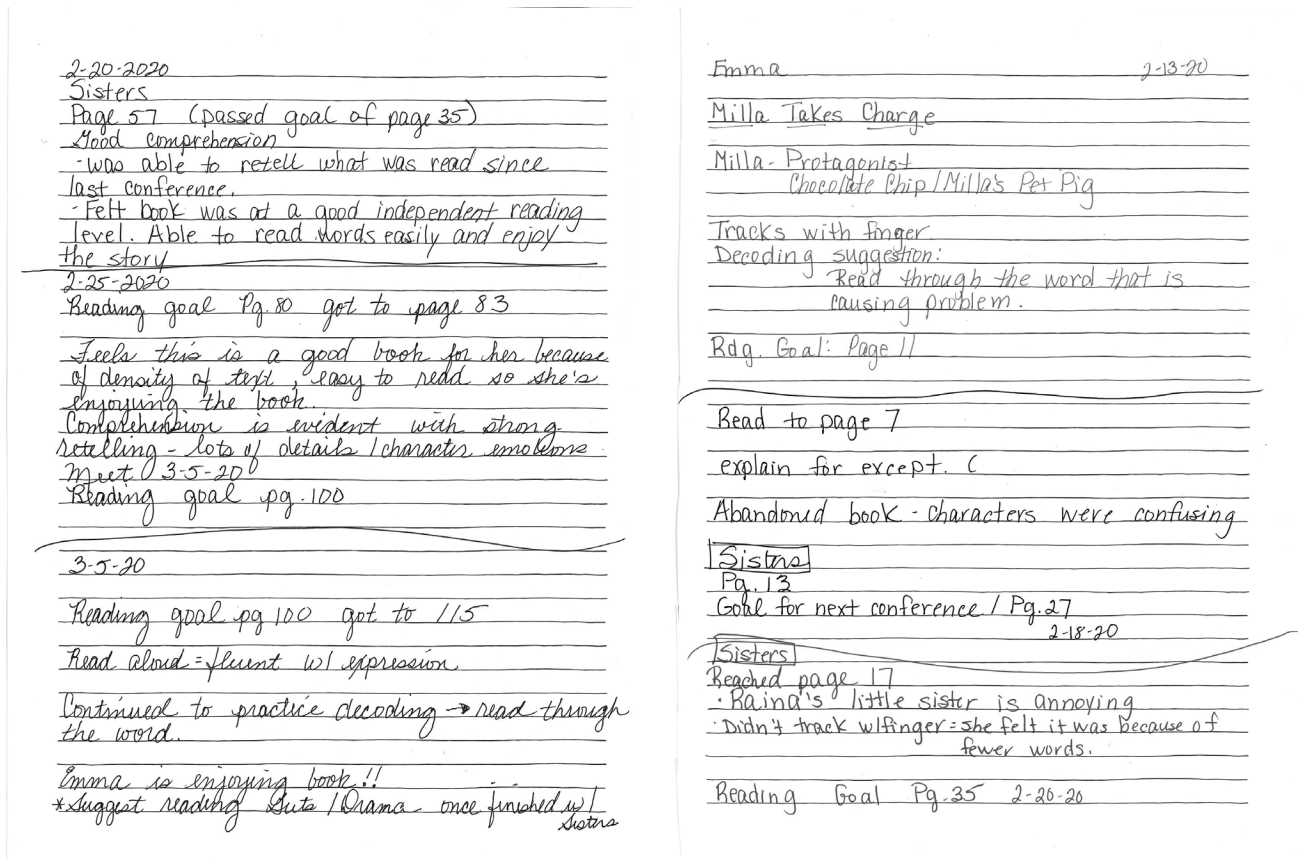 2-20-2020
Sisters
Page 57 (passed goal of page 35)
Good comprehension
-was able to retell what was read since
last conference.
-Felt book was at a good independent reading
level. Able to read words easily and enjoy
the story
2-25-2020
Reading goal Pg. 80 got to page 83
Feels this is a good book for her because
of density of text, easy to read so she's
enjoyiing the book.
Comprehension is evident with strong
retelling - lots of details / character emotions.
Meet 3-5-20
Reading goal pg. 100
3-5-20
Reading goal pg 100 got to 115
Read aloud = fluent w/ expression
Continued to practice decoding → read through
the word.
Emma is enjoying book!!
*Suggest reading Guts / Drama once finished w/
Sisters
Emma 2-13-20
Milla Takes Charge
Milla - Protagonist
Chocolate Chip / Milla's Pet Pig
Tracks with finger
Decoding suggestion:
Read through the word that is
causing problem.
Rdg. Goal: Page 11
Read to page 7
explain for except. (
Abandoned book - characters were confusing
Sisters
Pg. 13
Goal for next conference / Pg. 27
2-18-20
Sisters
Reached page 17
· Raina's little sister is annoying
· Didn't track w/finger = she felt it was because of
fewer words.
Reading Goal Pg. 35 2-20-20